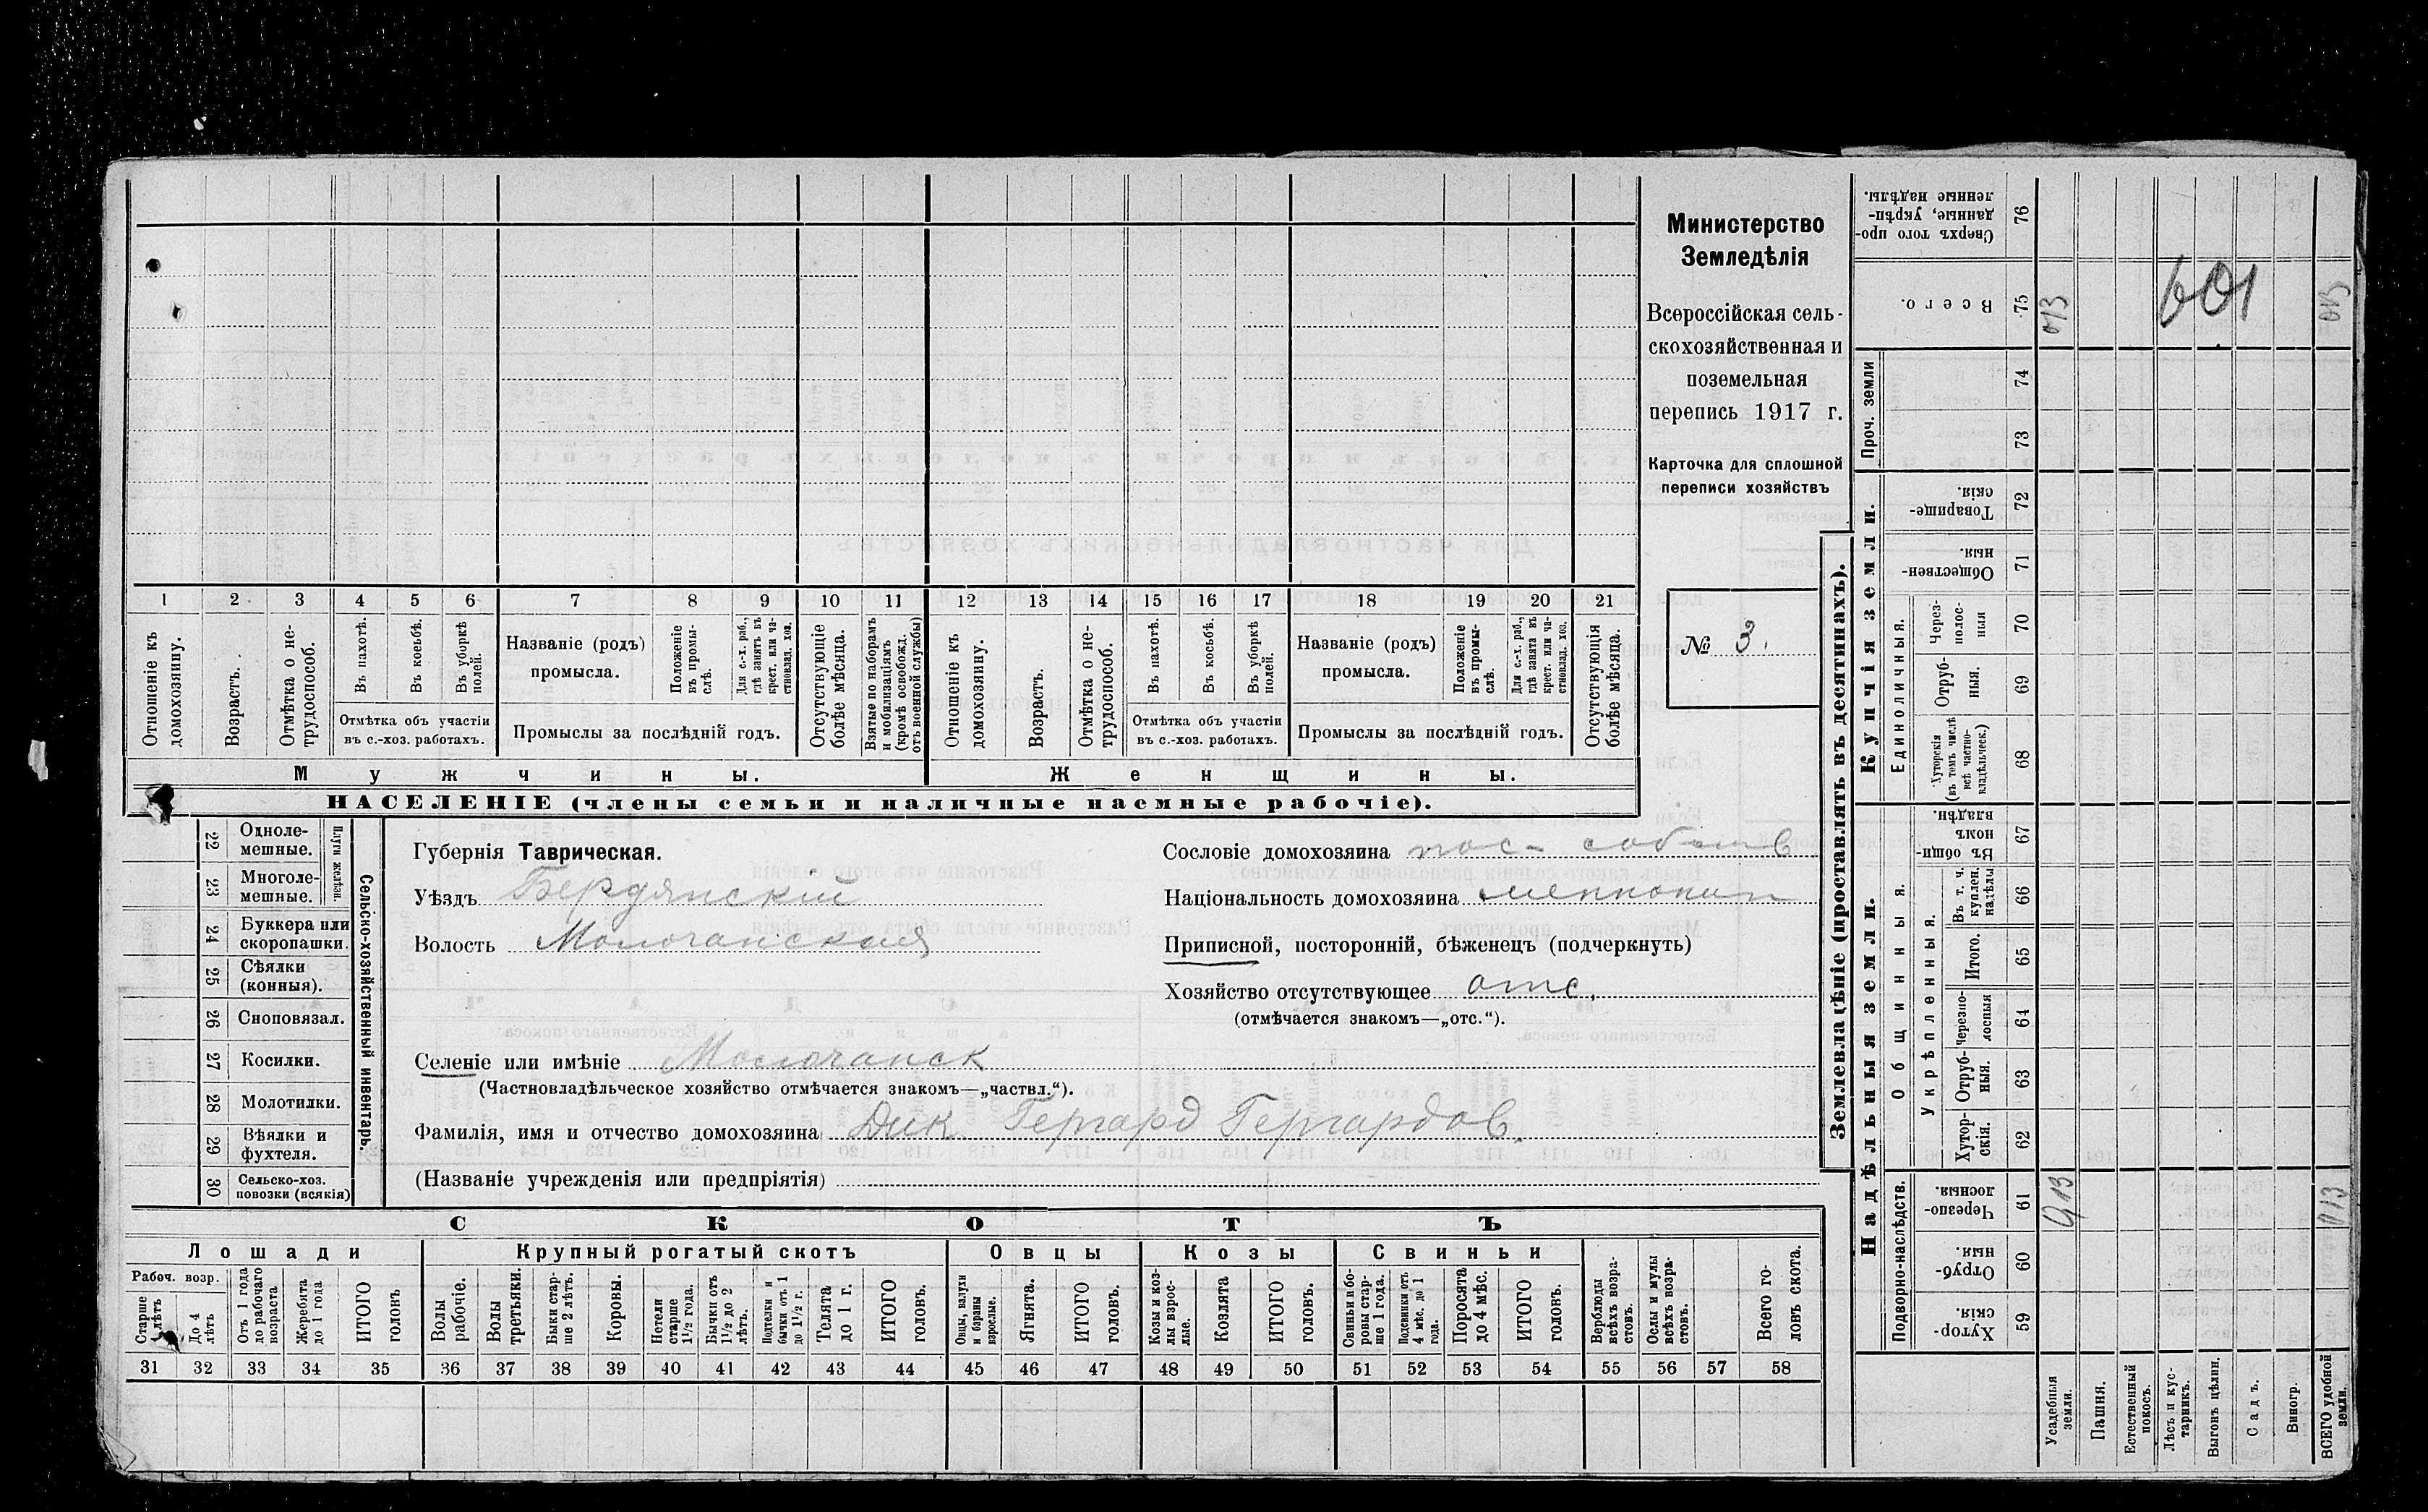 1 2 3 4 5 6 7 8 9 10 11 12 13 14 15 16 17 18 19 20 21
Отношеніе къ домохозяину.
Возрастъ.
Отмѣтка о не-
трудоспособ.
Въ пахотѣ.
Въ косьбѣ.
Въ уборкѣ
полей.
Отмѣтка объ участіи
въ с.-хоз. работахъ.
Названіе (родъ)
промысла.
Положеніе
въ промы-
слѣ.
Для с.-х. раб.,
гдѣ занятъ въ
крест. или ча-
стновлад. хоз.
Промыслы за послѣдній годъ.
Отсутствующіе
болѣе мѣсяца.
Взятые по наборамъ
и мобилизаціямъ
(кромѣ освобожд.
отъ военной службы)
Отношеніе къ
домохозяину.
Возрастъ.
Отмѣтка о не-
трудоспособ.
Въ пахотѣ.
Въ косьбѣ.
Въ уборкѣ
полей.
Отмѣтка объ участіи
въ с.-хоз. работахъ.
Названіе (родъ)
промысла.
Положеніе
въ промы-
слѣ.
Для с.-х. раб.,
гдѣ занята въ
крест. или ча-
стновлад. хоз.
Промыслы за послѣдній годъ.
Отсутствующія
болѣе мѣсяца.
Мужчины.
Женщины.
НАСЕЛЕНІЕ (члены семьи и наличные наемные рабочіе).
Министерство
Земледѣлія
Всероссійская сель-
скохозяйственная и
поземельная
перепись 1917 г.
Карточка для сплошной
переписи хозяйствъ
№ 3.
22 Одноле-
мешные.
23 Многоле-
мешные.
Плуги желѣзн.
24 Буккера или
скоропашки.
25 Сѣялки
(конныя).
26 Сноповязал.
27 Косилки.
28 Молотилки.
29 Вѣялки и
фухтеля.
30 Сельско-хоз.
повозки (всякія)
Сельско-хозяйственный инвентарь.
Губернія Таврическая.
Уѣздъ Бердянскій
Волость Молочанская
Сословіе домохозяина пос- собств
Національность домохозяина меннонит
Приписной, посторонній, бѣженецъ (подчеркнуть)
Хозяйство отсутствующее отс.
(отмѣчается знакомъ—„отс.“).
Селеніе или имѣніе Молочанск
(Частновладѣльческое хозяйство отмѣчается знакомъ—„частвл.“).
Фамилія, имя и отчество домохозяина Дик Гергард Гергардов.
(Названіе учрежденія или предпріятія)
СКОТЪ
Лошади
Крупный рогатый скотъ
Овцы
Козы
Свиньи
Рабоч. возр.
Старше
4 лѣтъ
До 4
лѣтъ
Отъ 1 года
до рабочаго
возраста
Жеребята
до 1 года
ИТОГО
головъ
Волы
рабочіе.
Волы
третьяки.
Быки стар-
ше 2 лѣтъ.
Коровы.
Нетели
старше
1½ года.
Бычки отъ
1½ до 2
лѣтъ.
Подтелки и
бычки отъ 1
до 1½ г.
Телята
до 1 г.
ИТОГО
головъ.
Овцы, валухи
и бараны
взрослые.
Ягнята.
ИТОГО
головъ.
Козы и коз-
лы взрос-
лые.
Козлята
ИТОГО
головъ.
Свиньи и бо-
ровы стар-
ше 1 года.
Подсвинки отъ
4 мѣс. до 1
года.
Поросята
до 4 мѣс.
ИТОГО
головъ.
Верблюды
всѣхъ возра-
стовъ.
Ослы и мулы
всѣхъ возра-
стовъ.
Всего го-
ловъ скота.
31 32 33 34 35 36 37 38 39 40 41 42 43 44 45 46 47 48 49 50 51 52 53 54 55 56 57 58
Землевладѣніе (проставлять въ десятинахъ).
Надѣльныя земли.
Купчія земли.
Проч. земли
Подворно-наслѣдств.
Общинныя.
Укрѣпленныя.
Единоличныя.
Сверхъ того про-
данные, укрѣп-
ленные надѣлы.
76
Всего.
75
013
601
013
74
73
Товарище-
скія.
72
Обществен-
ныя.
71
Через-
полос-
ныя
70
Отруб-
ныя.
69
Хуторскія
(въ томъ числѣ
всѣ частно-
владѣльческ.)
68
Въ общи-
номъ
владѣн.
67
Въ т. ч.
куплен.
надѣлы
66
Итого.
65
Черезпо-
лосныя
64
Отруб-
ныя.
63
Хутор-
скія.
62
Черезпо-
лосныя.
61
013
013
Отруб-
ныя.
60
Хутор-
скія.
59
Усадебныя
земли.
Пашня.
Естественный
покосъ.
Лѣсъ и кус-
тарникъ.
Выгонъ цѣлин.
Садъ.
Виногр.
ВСЕГО удобной
земли.